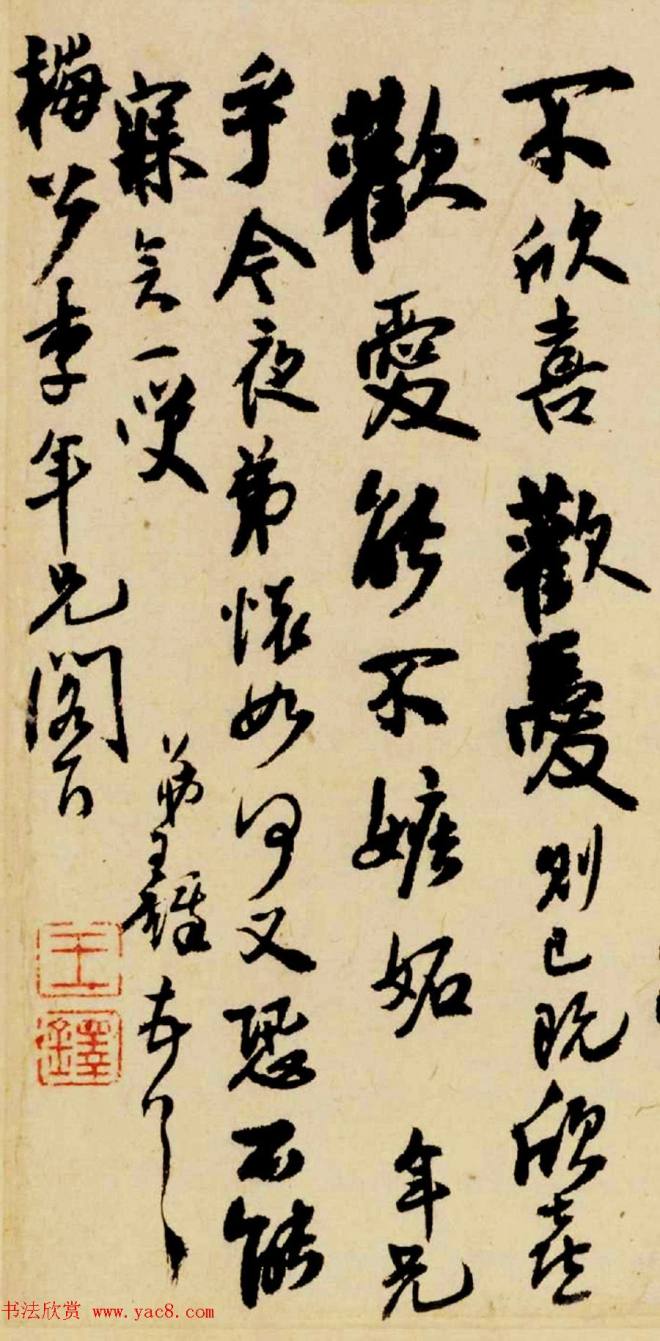 不欣喜歡愛則已既欣喜
歡愛能不嫉妬 年兄
乎今夜弟懷如何又恐不能
寐矣一
弟王鐸
梅公李年兄閣下
王鐸
书法欣赏 www.yac8.com